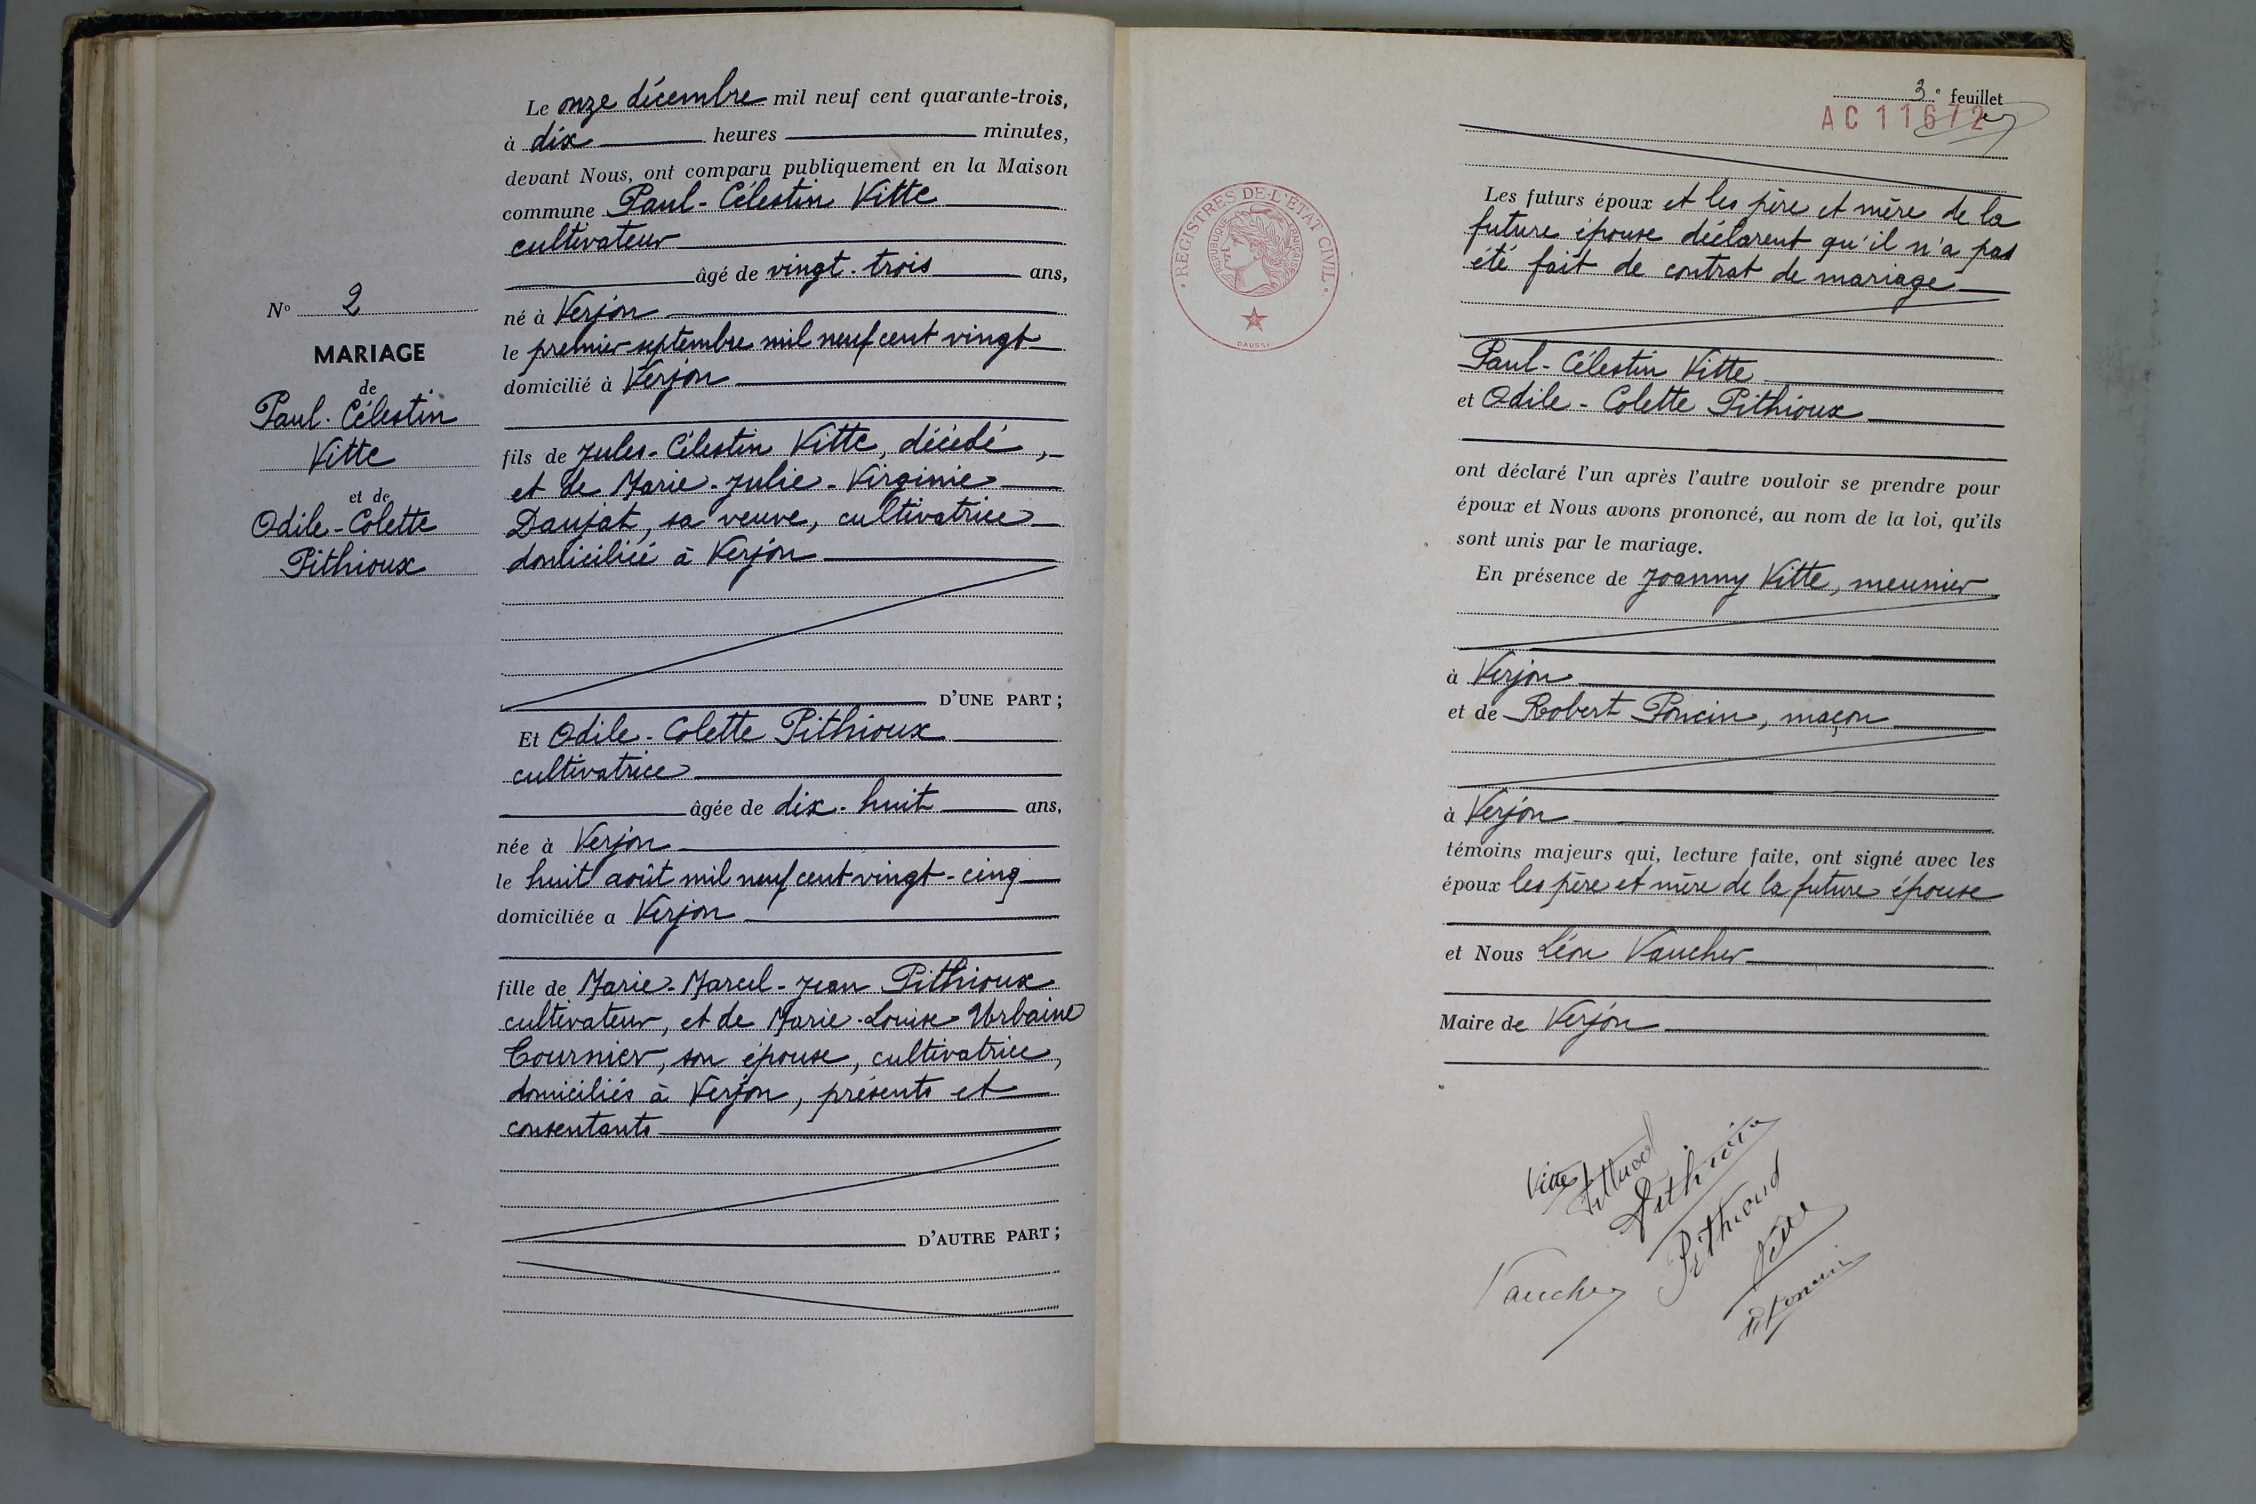 N° 2
MARIAGE
de
Paul-Célestin
Vitte
et de
Odile-Colette
Pithioux
Le onze décembre mil neuf cent quarante-trois,
à dix heures minutes,
devant Nous, ont comparu publiquement en la Maison
commune Paul-Célestin Vitte
cultivateur
âgé de vingt-trois ans,
né à Verjon
le premier septembre mil neuf cent vingt
domicilié à Verjon
fils de Jules-Célestin Vitte, décédé,
et de Marie-Julie-Virginie
Daujat, sa veuve, cultivatrice
domiciliée à Verjon
D'UNE PART ;
Et Odile-Colette Pithioux
cultivatrice
âgée de dix-huit ans,
née à Verjon
le huit août mil neuf cent vingt-cinq
domiciliée a Verjon
fille de Marie-Marcel-Jean Pithioux
cultivateur, et de Marie-Louise Urbaine
Cournier, son épouse, cultivatrice,
domiciliés à Verjon, présents et
consentants
D'AUTRE PART ;
3e feuillet
AC 11672
REGISTRES DE L'ÉTAT CIVIL
RÉPUBLIQUE FRANÇAISE
DAUSSY
Les futurs époux et les père et mère de la
future épouse déclarent qu'il n'a pas
été fait de contrat de mariage
Paul-Célestin Vitte
et Odile-Colette Pithioux
ont déclaré l'un après l'autre vouloir se prendre pour
époux et Nous avons prononcé, au nom de la loi, qu'ils
sont unis par le mariage.
En présence de Joanny Vitte, meunier
à Verjon
et de Robert Poncin, maçon
à Verjon
témoins majeurs qui, lecture faite, ont signé avec les
époux les père et mère de la future épouse
et Nous Léon Vaucher
Maire de Verjon
Vitte
Vaucher